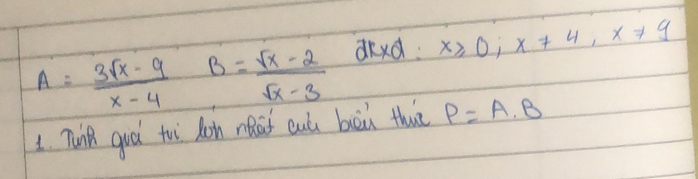 A = (3√x - 9)/(x - 4) B = (√x - 2)/(√x - 3) đkxđ: x ≥ 0; x ≠ 4, x ≠ 9
1. Tính giá trị lớn nhất của biểu thức P = A.B